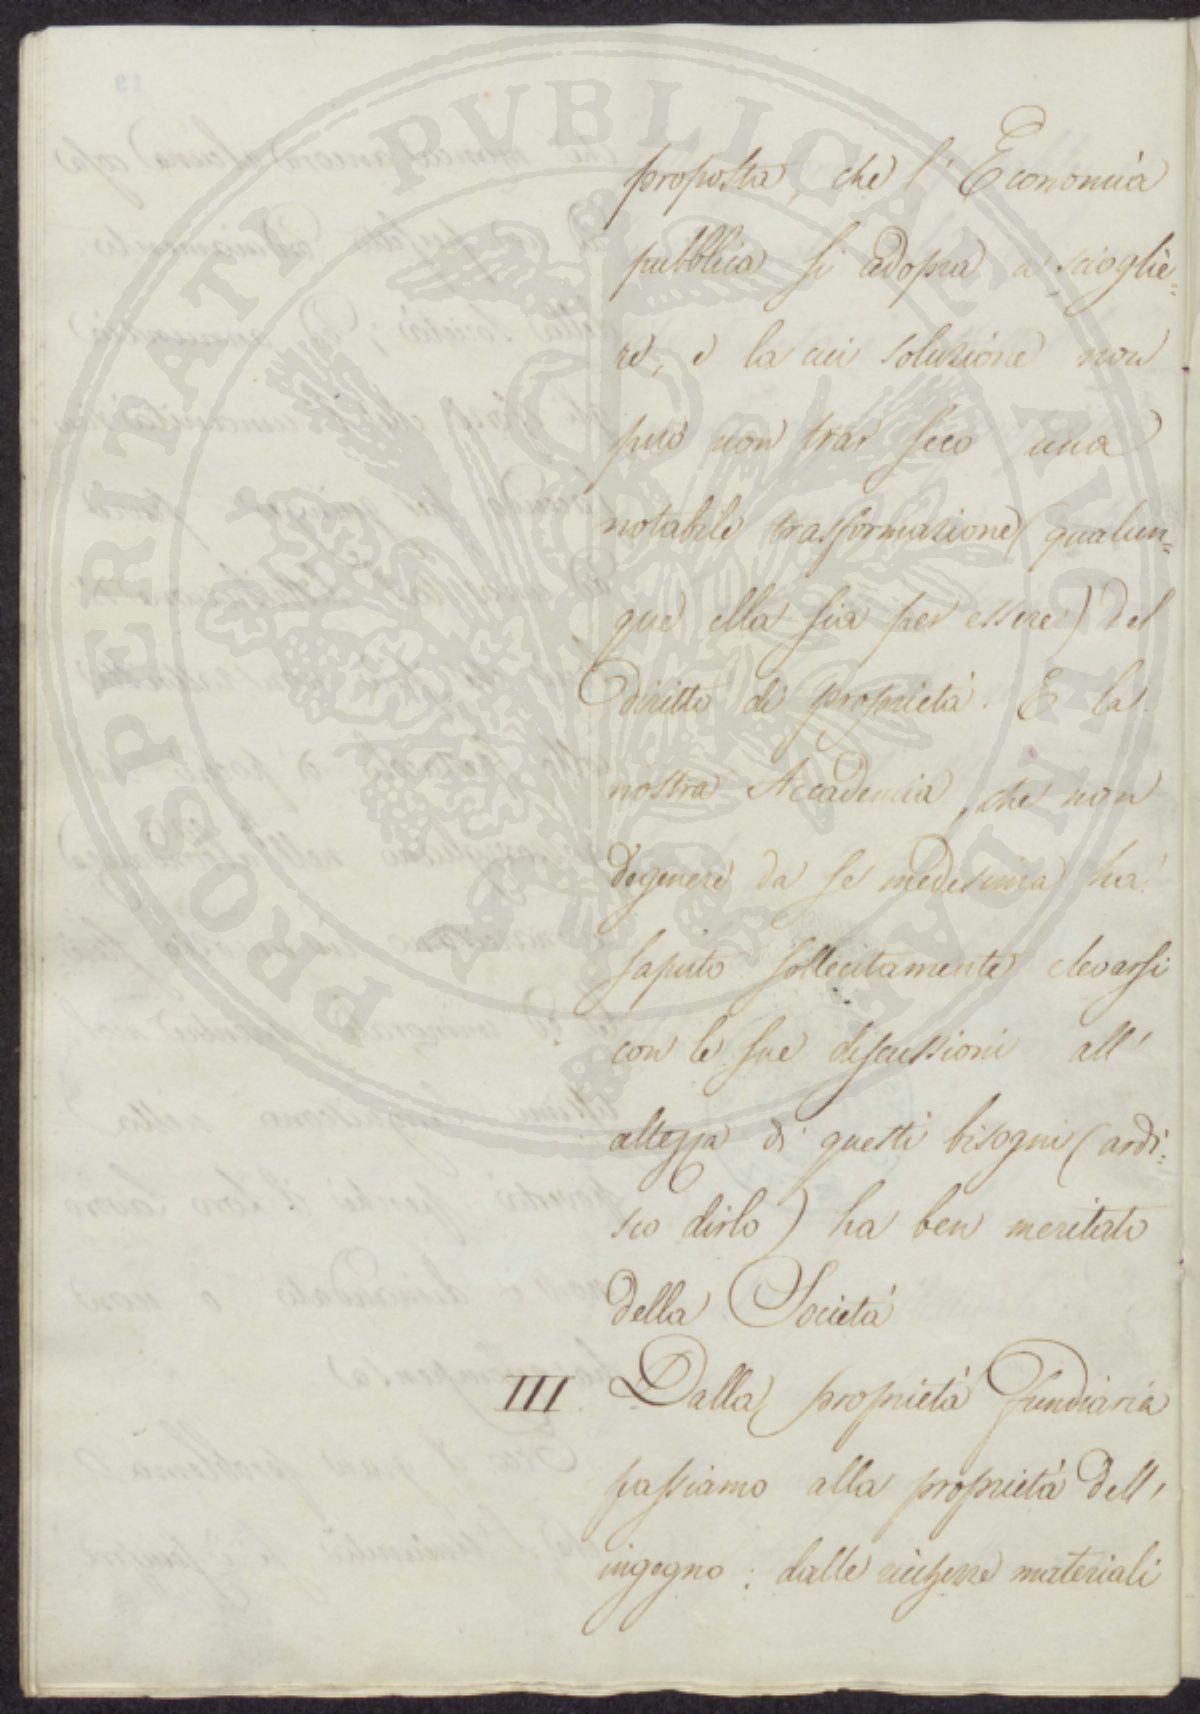 PROSPERITATI PVBLICAE AVGENDAE
proposta, che l' Economia
pubblica si adopra a scioglie=
re, e la cui soluzione non
può non trar seco una
notabile trasformazione (qualun=
que ella sia per essere) del
Diritto di proprietà. E la
nostra Accademia, che non
degenere da se medesima ha
saputo sollecitamente elevarsi
con le sue discussioni all'
altezza di questi bisogni (ardi=
sco dirlo) ha ben meritato
della Società
III Dalla proprietà fundiaria
passiamo alla proprietà dell'
ingegno: dalle ricchezze materiali